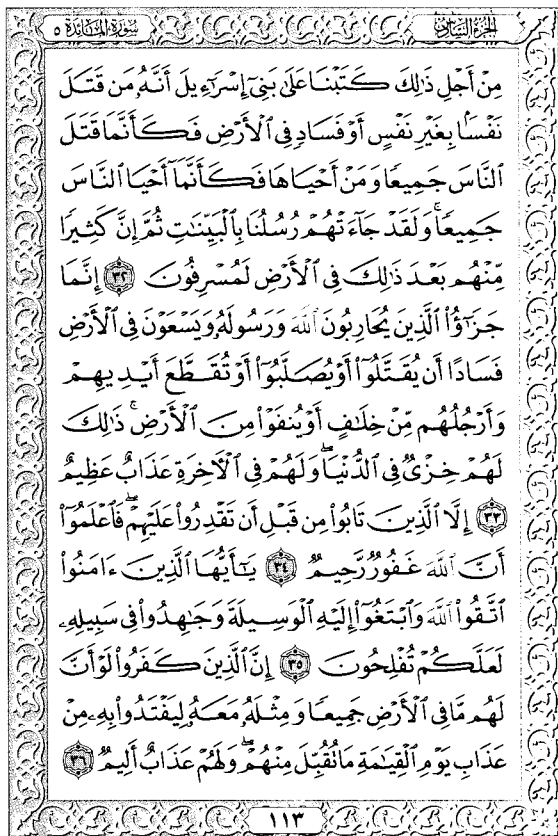 الجزء السادس
سورة المائدة ٥
مِنْ أَجْلِ ذَٰلِكَ كَتَبْنَا عَلَىٰ بَنِىٓ إِسْرَٰٓءِيلَ أَنَّهُۥ مَن قَتَلَ
نَفْسًۢا بِغَيْرِ نَفْسٍ أَوْ فَسَادٍ فِى ٱلْأَرْضِ فَكَأَنَّمَا قَتَلَ
ٱلنَّاسَ جَمِيعًا وَمَنْ أَحْيَاهَا فَكَأَنَّمَآ أَحْيَا ٱلنَّاسَ
جَمِيعًا ۚ وَلَقَدْ جَآءَتْهُمْ رُسُلُنَا بِٱلْبَيِّنَٰتِ ثُمَّ إِنَّ كَثِيرًا
مِّنْهُم بَعْدَ ذَٰلِكَ فِى ٱلْأَرْضِ لَمُسْرِفُونَ ٣٢ إِنَّمَا
جَزَٰٓؤُا۟ ٱلَّذِينَ يُحَارِبُونَ ٱللَّهَ وَرَسُولَهُۥ وَيَسْعَوْنَ فِى ٱلْأَرْضِ
فَسَادًا أَن يُقَتَّلُوٓا۟ أَوْ يُصَلَّبُوٓا۟ أَوْ تُقَطَّعَ أَيْدِيهِمْ
وَأَرْجُلُهُم مِّنْ خِلَٰفٍ أَوْ يُنفَوْا۟ مِنَ ٱلْأَرْضِ ۚ ذَٰلِكَ
لَهُمْ خِزْىٌ فِى ٱلدُّنْيَا ۖ وَلَهُمْ فِى ٱلْـَٔاخِرَةِ عَذَابٌ عَظِيمٌ
٣٣ إِلَّا ٱلَّذِينَ تَابُوا۟ مِن قَبْلِ أَن تَقْدِرُوا۟ عَلَيْهِمْ ۖ فَٱعْلَمُوٓا۟
أَنَّ ٱللَّهَ غَفُورٌ رَّحِيمٌ ٣٤ يَٰٓأَيُّهَا ٱلَّذِينَ ءَامَنُوا۟
ٱتَّقُوا۟ ٱللَّهَ وَٱبْتَغُوٓا۟ إِلَيْهِ ٱلْوَسِيلَةَ وَجَٰهِدُوا۟ فِى سَبِيلِهِۦ
لَعَلَّكُمْ تُفْلِحُونَ ٣٥ إِنَّ ٱلَّذِينَ كَفَرُوا۟ لَوْ أَنَّ
لَهُم مَّا فِى ٱلْأَرْضِ جَمِيعًا وَمِثْلَهُۥ مَعَهُۥ لِيَفْتَدُوا۟ بِهِۦ مِنْ
عَذَابِ يَوْمِ ٱلْقِيَٰمَةِ مَا تُقُبِّلَ مِنْهُمْ ۖ وَلَهُمْ عَذَابٌ أَلِيمٌ ٣٦
١١٣